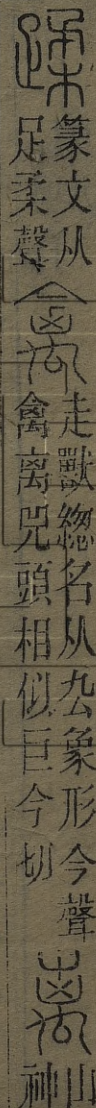 蹂
篆文从
足柔聲
禽
走獸緫名从厹象形今聲
禽离兕頭相似巨今切
离
山
神